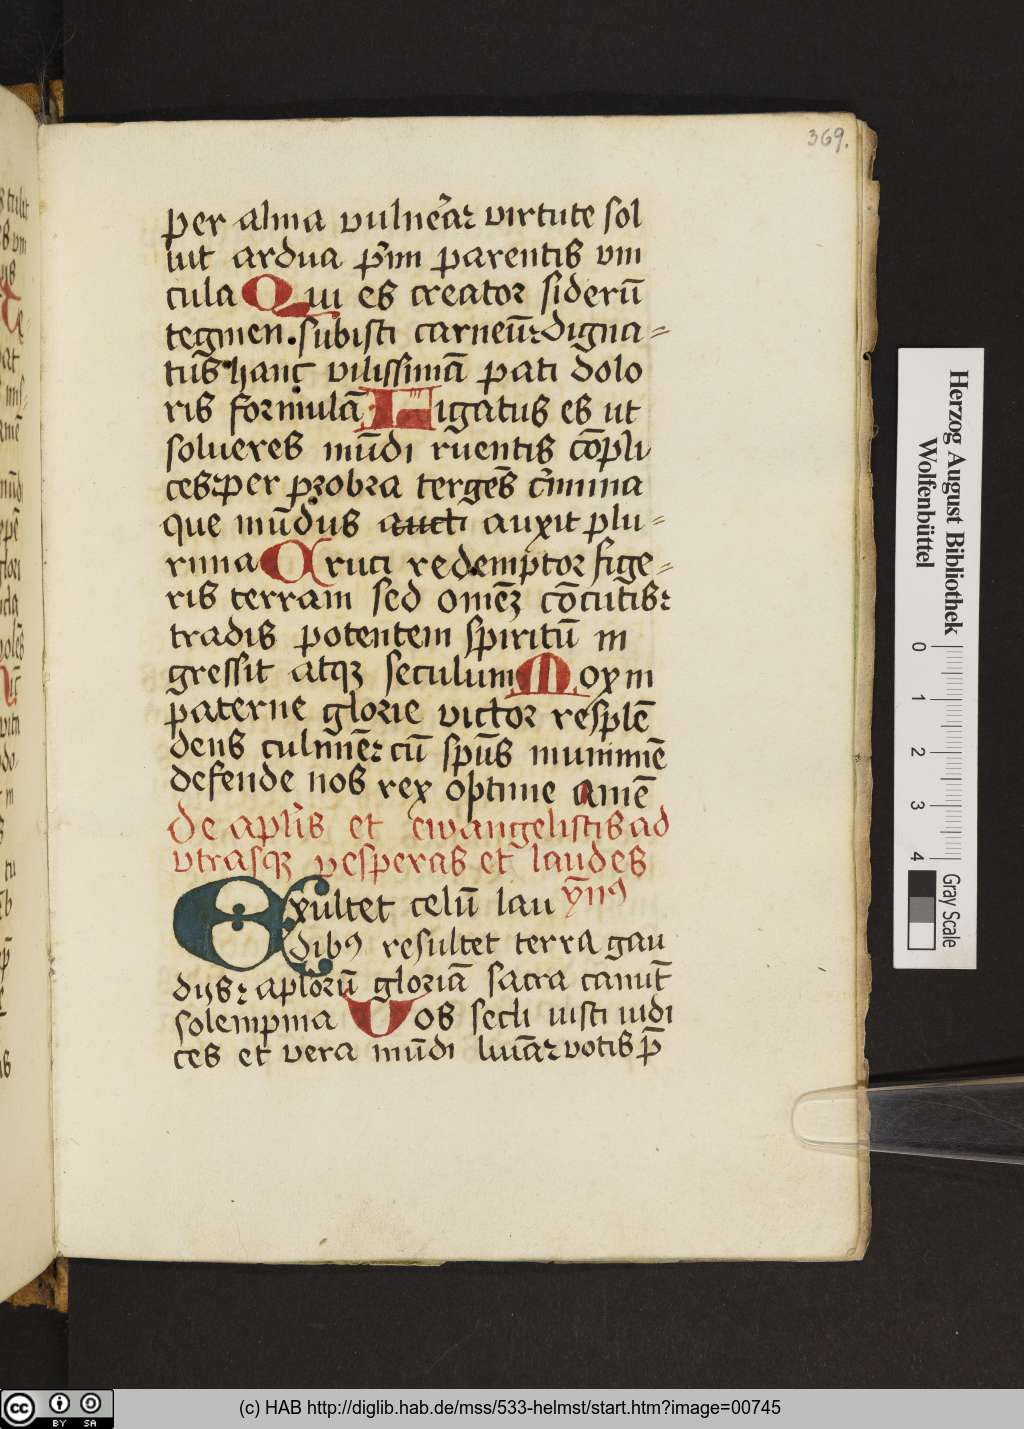 369.
per alma vulneraꝛ virtute sol
uit ardua pͥmi parentis vin
cula Qui es creator siderū
tegmen. subisti carneūꝛ digna=
tus hanc vilissimā pati dolo
ris formulā Ligatus es ut
solueres mūdi ruentis cōpli
cesꝛ per probra tergēs cͥmina
que mūdus aucti auxit plu=
rima Cruci redemptor fige=
ris terram sed omēꝫ cōcutisꝛ
tradis potentem spiritū in
gressit atqꝫ seculum Mox in
paterne glorie victor resplē
dens culmīeꝛ cū spūs munimīe
defende nos rex optime amē
De aplis et ewangelistis ad
vtrasqꝫ vesperas et laudes
ymꝰ
Exultet celū lau
dibꝰ resultet terra gau
dijsꝛ aplorū gloriā sacra canūt
solempnia Vos secli iusti iudi
ces et vera mūdi luīaꝛ votis p̄
Herzog August Bibliothek
Wolfenbüttel
0 1 2 3 4
Gray Scale
cc BY SA
(c) HAB http://diglib.hab.de/mss/533-helmst/start.htm?image=00745